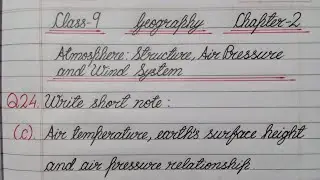 Class-9 Geography Chapter-2
Atmosphere: Structure, Air Pressure
and Wind System
Q24. Write short note :
(c) Air temperature, earth's surface height
and air pressure relationship